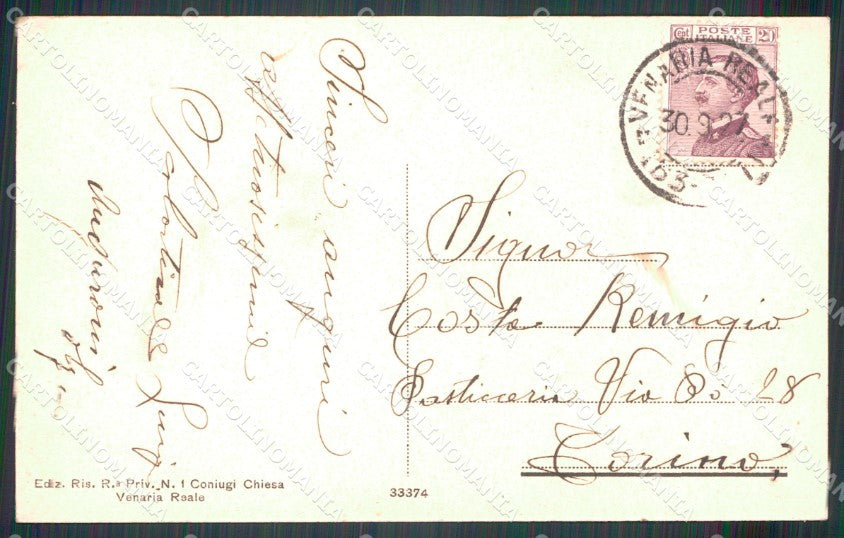 Cent POSTE ITALIANE 20
VENARIA REALE
30.9.27
Sinceri auguri
affettuosissimi
Luigi
Signor
Costa Remigio
Pasticceria Via Po 28
Torino,
Ediz. Ris. Rª Priv. N. 1 Coniugi Chiesa
Venaria Reale
33374
CARTOLINOMANIA